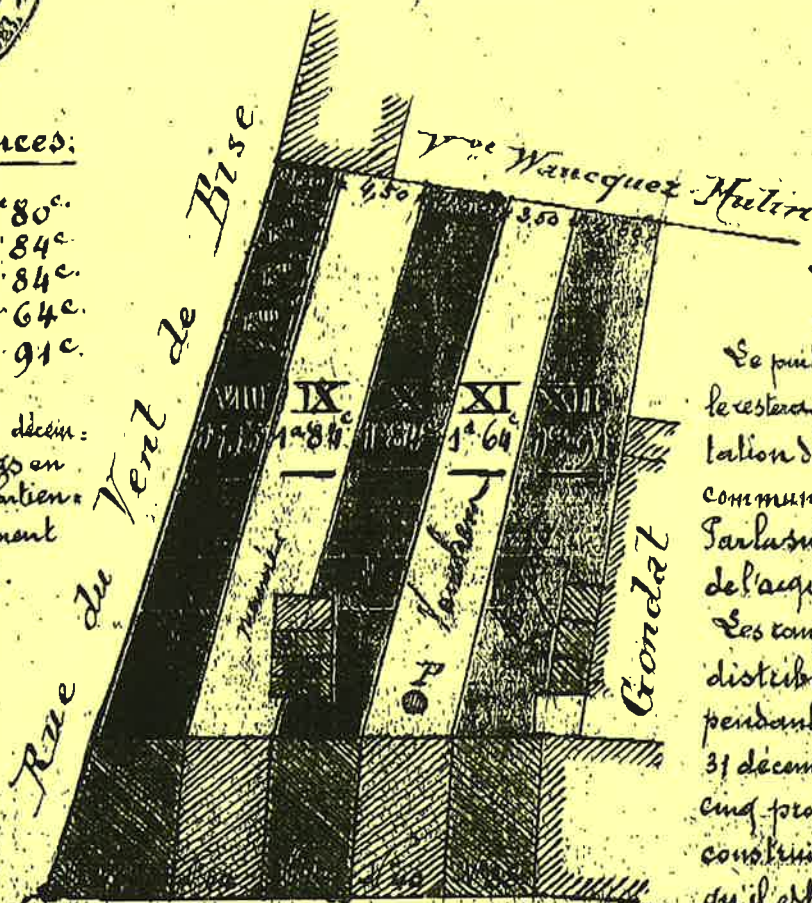 nces:
80c.
84c.
84c.
64c.
91c.
décem:
en
tien=
ment
Rue du Vent de Bise
Vve Wancquez-Hulin
4,50
3,50
VIII
IX
X
XI
XII
1a 84c
1a 84
1a 64c
P
Gondat
Le pui
le restera
tation d
commun
Par la su
de l'acqu
Les con
distrib
pendan
31 décem
cinq pro
construi
qu'il est